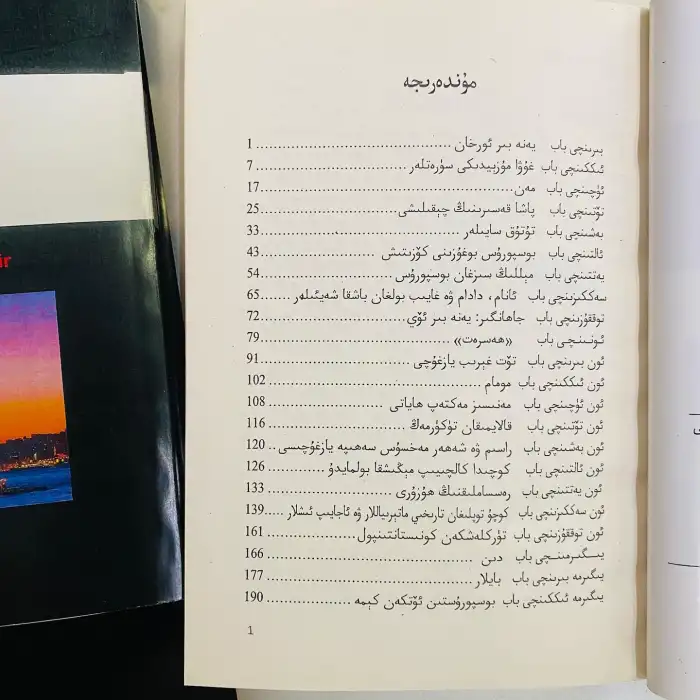 مۇندەرىجە
بىرىنچى باب يەنە بىر ئورخان ........................................ 1
ئىككىنچى باب غۇۋا مۇزېيدىكى سۈرەتلەر ........................ 7
ئۈچىنچى باب مەن........................................ 17
تۆتىنچى باب پاشا قەسىرىنىڭ چېقىلىشى........................ 25
بەشىنچى باب تۇتۇق سايىلەر ........................ 33
ئالتىنچى باب بوسپورۇس بوغۇزىنى كۆزىتىش ................ 43
يەتتىنچى باب مېللىڭ سىزغان بوسپورۇس ........................ 54
سەككىزىنچى باب ئانام، دادام ۋە غايىب بولغان باشقا شەيئىلەر ...... 65
توققۇزىنچى باب جاھانگىر: يەنە بىر ئۆي........................ 72
ئونىنچى باب «ھەسرەت» ........................ 79
ئون بىرىنچى باب تۆت غېرىب يازغۇچى ........................ 91
ئون ئىككىنچى باب مومام ........................ 102
ئون ئۈچىنچى باب مەنىسىز مەكتەپ ھاياتى ................ 108
ئون تۆتىنچى باب قالايمىقان تۈكۈرمەڭ ................ 116
ئون بەشىنچى باب راسىم ۋە شەھەر مەخسۇس سەھىپە يازغۇچىسى .. 120
ئون ئالتىنچى باب كوچىدا كالچىيىپ مېڭىشقا بولمايدۇ ........ 126
ئون يەتتىنچى باب رەسساملىقنىڭ ھۇزۇرى ................ 133
ئون سەككىزىنچى باب كوچۇ توپلىغان تارىخىي ماتېرىياللار ۋە ئاجايىپ ئىشلار ..... 139
ئون توققۇزىنچى باب تۈركلەشكەن كونىستانتىنپول................ 161
يىگىرمىنچى باب دىن ........................ 166
يىگىرمە بىرىنچى باب بايلار........................ 177
يىگىرمە ئىككىنچى باب بوسپورۇستىن ئۆتكەن كېمە ................ 190
1
ir